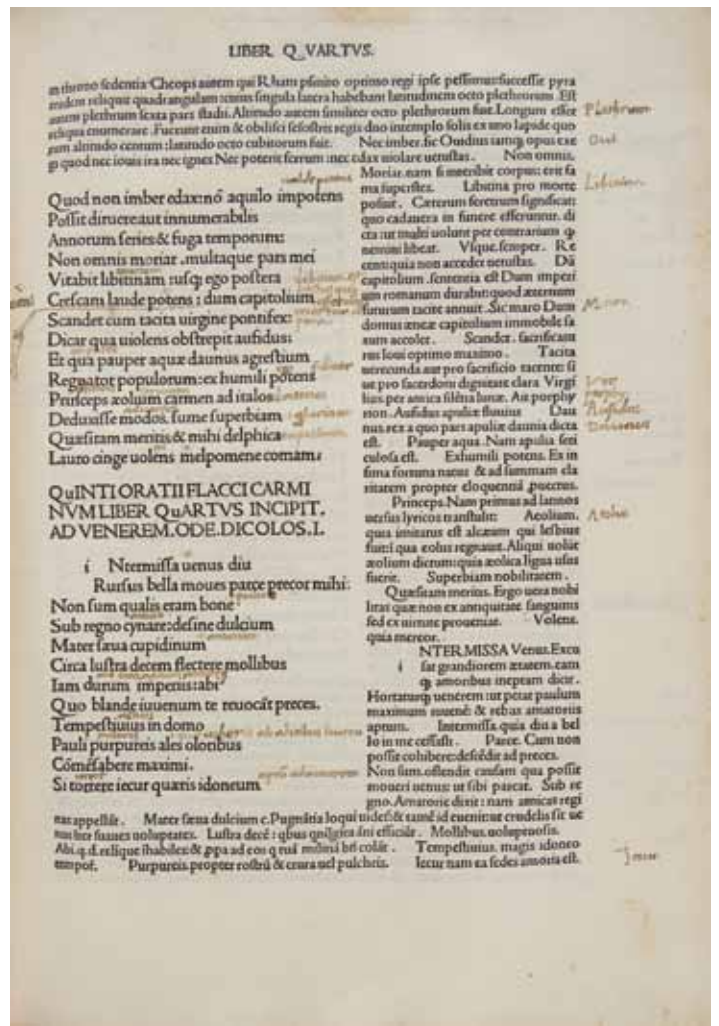 LIBER Q_VARTVS.
in throno sedentia Cheops autem qui Rham psinito optimo regi ipse pessimus successit pyra
quadrangulam: cuius singula latera habebant latitudinem octo plethrorum. Est
autem plethrum sexta pars stadii. Altitudo autem similiter octo plethrorum fuit. Longum esset
reliqua enumerare. Fuerunt enim & obelisci sesostris regis duo in templo solis ex uno lapide quo
rum altitudo centum: latitudo octo cubitorum fuit. Nec imber. sic Ouidius iamq; opus exe
gi quod nec iouis ira nec ignes Nec poterit ferrum: nec edax uiolare uetustas. Non omnis.
Quod non imber edax: nõ aquilo impotens
Possit diruere: aut innumerabilis
Annorum series & fuga temporum:
Non omnis moriar. multaque pars mei
Vitabit libitinam: usq; ego postera
Crescam laude potens: dum capitolium
Scandet cum tacita uirgine pontifex:
Dicar qua uiolens obstrepit aufidus:
Et qua pauper aquæ daunus agrestium
Regnator populorum: ex humili potens
Princeps æolium carmen ad italos
Deduxisse modos. sume superbiam
Quæsitam meritis & mihi delphica
Lauro cinge uolens melpomene comam:
QuINTI ORATII FLACCI CARMI
NVM LIBER QuARTVS INCIPIT.
AD VENEREM. ODE. DICOLOS. I.
i Ntermissa uenus diu
Rursus bella moues parce precor mihi:
Non sum qualis eram bone
Sub regno cynare: desine dulcium
Mater sæua cupidinum
Circa lustra decem flectere mollibus
Iam durum imperiis: abi
Quo blande iuuenum te reuocãt preces.
Tempestiuius in domo
Pauli purpureis ales oloribus
Cõmesabere maximi.
Si torrere iecur quæris idoneum
Moriar. nam si interibit corpus: erit fa
ma superstes. Libitina pro morte
posuit. Cæterum feretrum significat:
quo cadauera in funere efferuntur. di
cta: ut multi uolunt per contrarium q
nemini libeat. Vsque. semper. Re
cens: quia non accedet uetustas. Dũ
capitolium. sententia est Dum imperi
um romanum durabit: quod æternum
futurum tacite annuit. Sic maro Dum
domus æneæ capitolium immobile sa
xum accolet. Scandet. sacrificatu
rus Ioui optimo maximo. Tacita
uerecunda aut pro sacrificio tacente: si
ue pro sacerdotii dignitate clara Virgi
lius. per amica silẽtia lunæ. Ait porphy
rion. Aufidus apuliæ fluuius Dau
nus. rex a quo pars apuliæ daunia dicta
est. Pauper aqua. Nam apulia siti
culosa est. Ex humili potens. Ex in
fima fortuna natus & ad summam cla
ritatem propter eloquentiã puectus.
Princeps. Nam primus ad latinos
uersus lyricos transtulit: Aeolium.
quia imitatus est alcæum qui lesbius
fuit: i qua eolus regnauit. Aliqui uolũt
æolium dictum: quia æolica ligua usus
fuerit. Superbiam nobilitatem.
Quæsitam meritis. Ergo uera nobi
litas quæ non ex antiquitate sanguinis
sed ex uirtute proueniat. Volens.
quia mereor.
NTERMISSA Venus. Excu
i sat grandiorem ætatem. eam
q; amoribus ineptam dicit.
Hortaturq; uenerem: ut petat paulum
maximum iuuenẽ: & rebus amatoriis
aptum. Intermissa. quia diu a bel
lo in me cessasti. Parce. Cum non
possit cohibere: descẽdit ad preces.
Non sum. ostendit causam qua possit
moueri uenus: ut sibi parcat. Sub re
gno. Amatorie dixit: nam amicas regi
nas appellãt. Mater sæua dulcium
Mollibus. uoluptuosis.
Tempestiuius. magis idoneo
tempore. Purpureis. propter rostrũ & crura uel pulchris. Iecur nam ea sedes amoris est.
Plethrum
Ouid
Libitina
Maro
Aufidus
Daunus